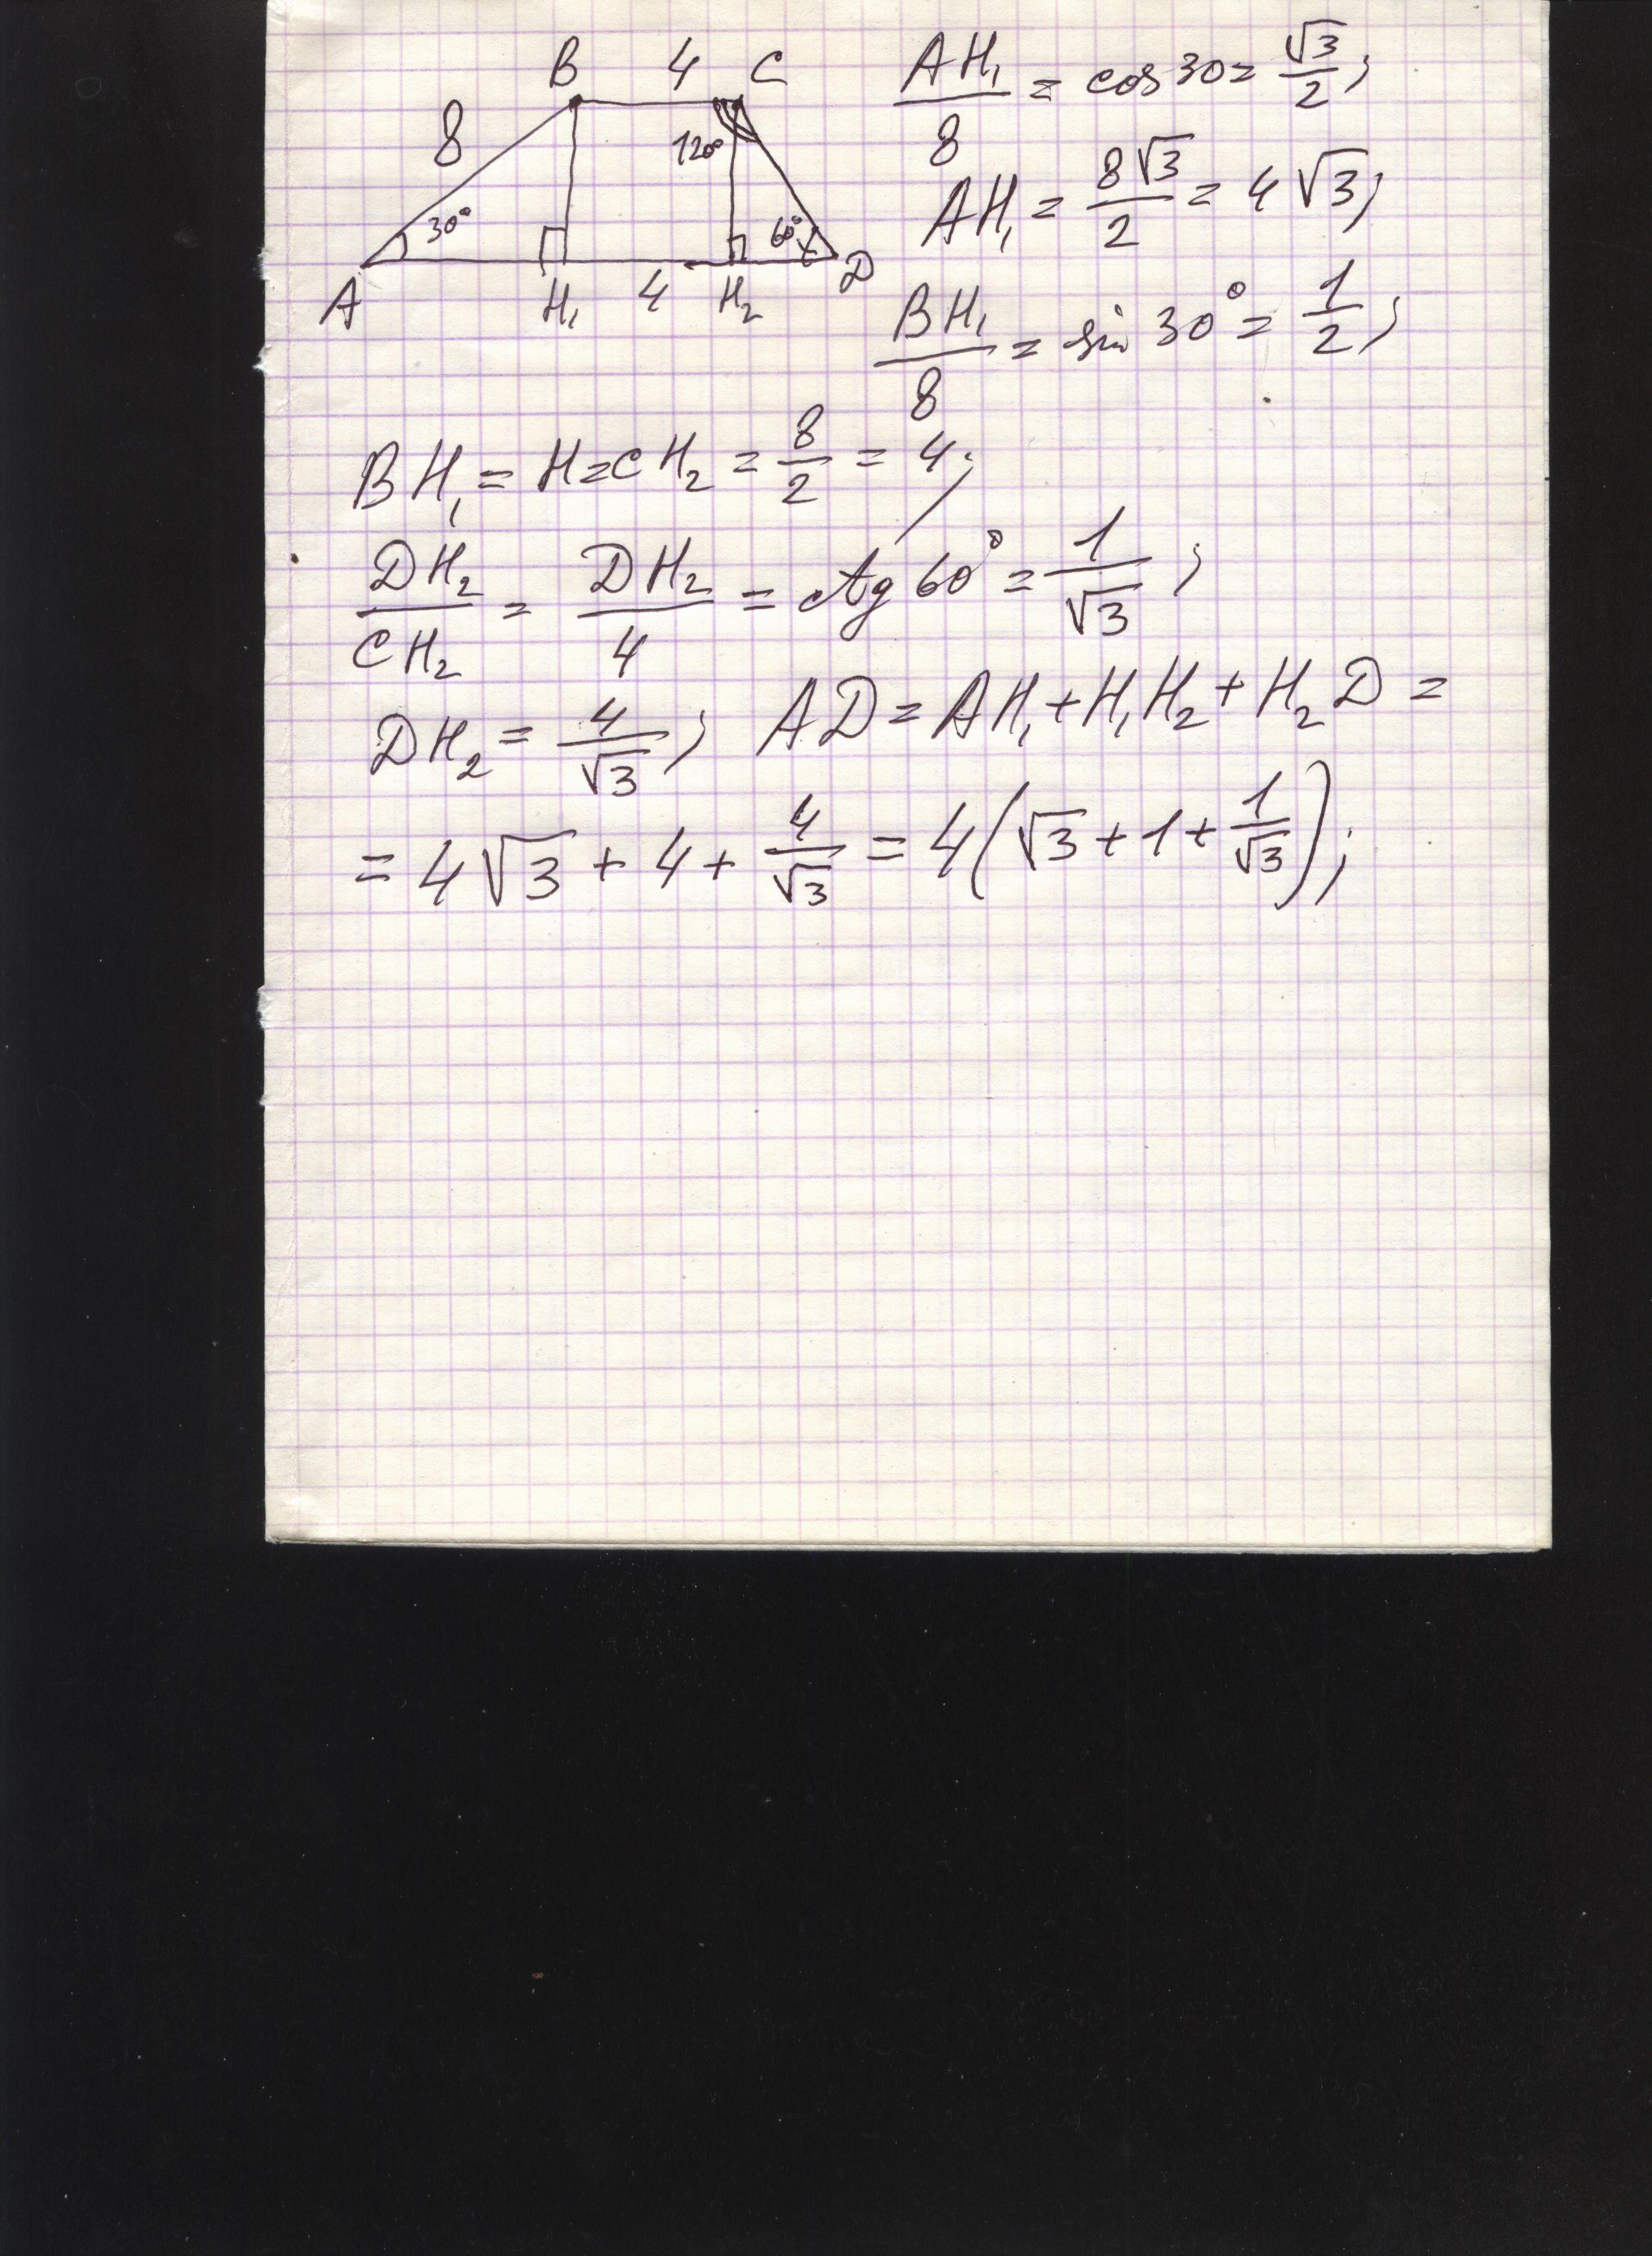 B 4 C
8
120°
30° 60°
A H₁ 4 H₂ D
AH₁/8 = cos 30 = √3/2;
AH₁ = 8√3/2 = 4√3;
BH₁/8 = sin 30° = 1/2;
BH₁ = H = CH₂ = 8/2 = 4;
DH₂/CH₂ = DH₂/4 = ctg 60° = 1/√3;
DH₂ = 4/√3; AD = AH₁ + H₁H₂ + H₂D =
= 4√3 + 4 + 4/√3 = 4(√3 + 1 + 1/√3);